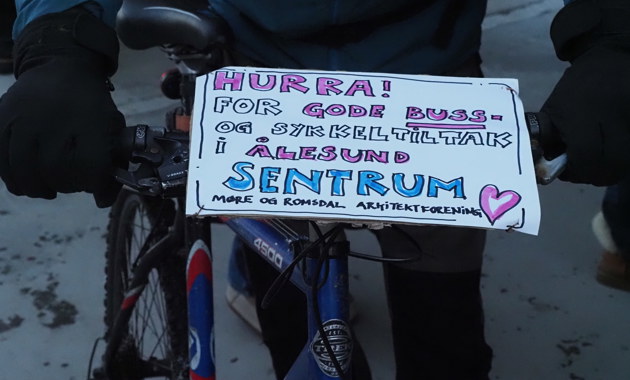 HURRA!
FOR GODE BUSS-
OG SYKKELTILTAK
I ÅLESUND
SENTRUM
MØRE OG ROMSDAL ARKITEKTFORENING
4500